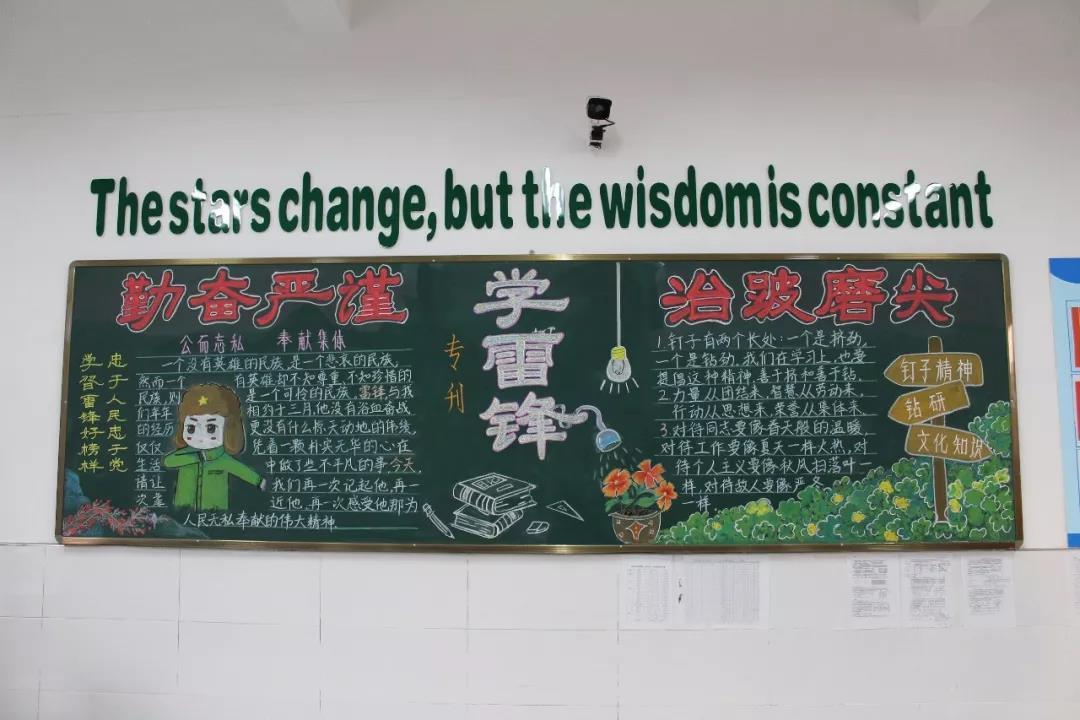 The stars change, but the wisdom is constant
勤奋严谨
公而忘私 奉献集体
学习雷锋好榜样
忠于人民忠于党
一个没有英雄的民族,是一个悲哀的民族,
然而一个 有英雄却不知尊重,不知珍惜的
民族,则 是一个可怜的民族,雷锋与我
们年年 相约十三月,他没有浴血奋战
的经历 更没有什么惊天动地的伟绩,
仅仅 凭着一颗朴实无华的心在
生活 中做了些不平凡的事今天,
请让 我们再一次记起他,再一
次靠 近他,再一次感受他那为
人民无私奉献的伟大精神.
学雷锋
专刊
治跛磨尖
1.钉子有两个长处:一个是挤劲,
一个是钻劲,我们在学习上,也要
提倡这种精神,善于挤和善于钻.
2.力量从团结来,智慧从劳动来,
行动从思想来,荣誉从集体来
3.对待同志要像春天般的温暖,
对待工作要像夏天一样火热,对
待个人主义要像秋风扫落叶一
样,对待敌人要像严冬
一样.
钉子精神
钻研
文化知识